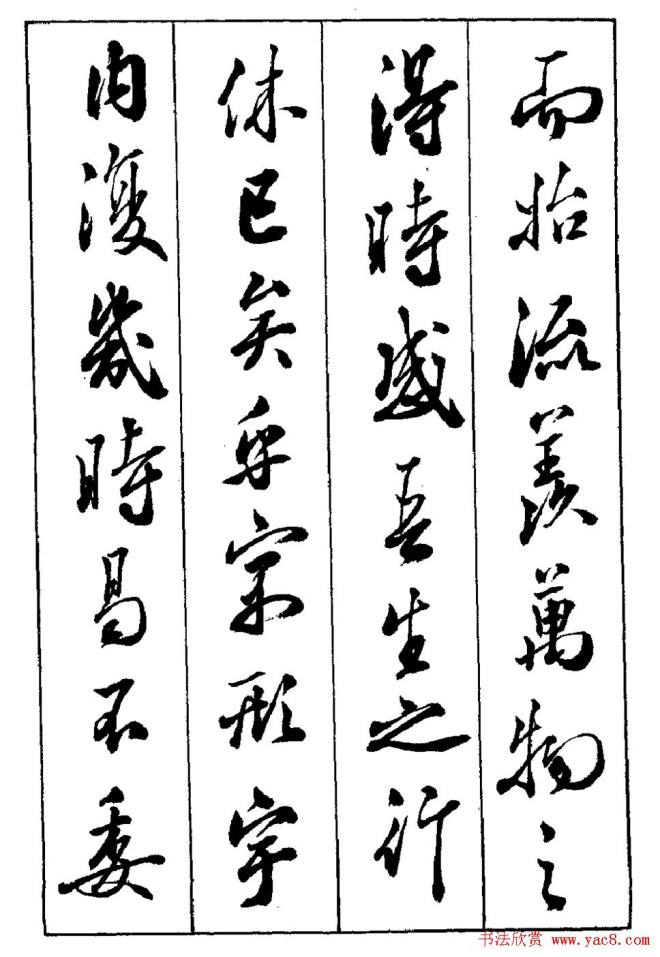 而始流羨萬物之
得時感吾生之行
休已矣乎寓形宇
內復幾時曷不委
书法欣赏 www.yac8.com